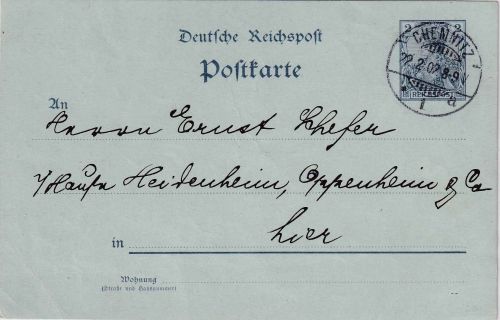 Deutsche Reichspost
Postkarte
2 2
CHEMNITZ
22.2.02.8-9V
1 a
REICHSPOST
An
Herrn Ernst Schefer
Heidenheim, Oppenheim & Co
in hier
Wohnung
(Straße und Hausnummer)